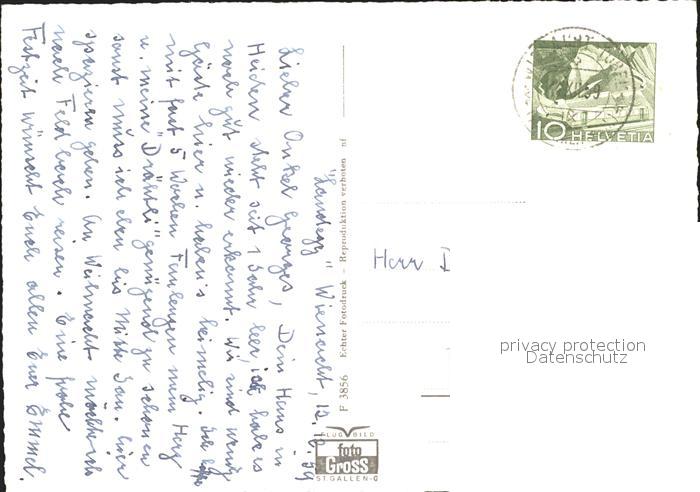 "Landegg" Wienacht, 12.12.59
Lieber Onkel Georges, Dein Haus in
Heiden steht seit 1 Jahr leer, ich habe es
noch gut wieder erkannt. Wir sind wenig
Gäste hier u. haben's heimelig. Ich
mit fast 5 Wochen mein Herz
u. meine "Drähtli" genügend zu schonen
sonst muss ich eben bis Mitte Jan. hier
spazieren gehen. An Weihnacht möchte ich
nach Feldbach reisen. Eine frohe
Festzeit wünscht Euch allen Euer Emmel.
F 3856 Echter Fotodruck – Reproduktion verboten nf
FLUGBILD
foto
Gross
ST. GALLEN-O
10 HELVETIA
Herr D
privacy protection
Datenschutz